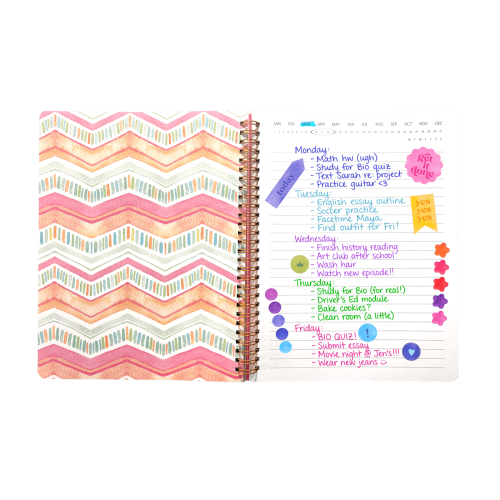 JAN FEB MAR APR MAY JUN JUL AUG SEP OCT NOV DEC
Monday:
- Math hw (ugh)
- Study for Bio quiz
- Text Sarah re: project
- Practice guitar <3
get it done
today
Tuesday:
- English essay outline
- Soccer practice
- Facetime Maya
- Find outfit for Fri!
yes
yes
yes
Wednesday:
- Finish history reading
- Art club after school
- Wash hair
- Watch new episode!!
Thursday:
- Study for Bio (for real!)
- Driver's Ed module
- Bake cookies?
- Clean room (a little)
Friday:
- BIO QUIZ!
!
- Submit essay
- Movie night @ Jen's!!!
- Wear new jeans